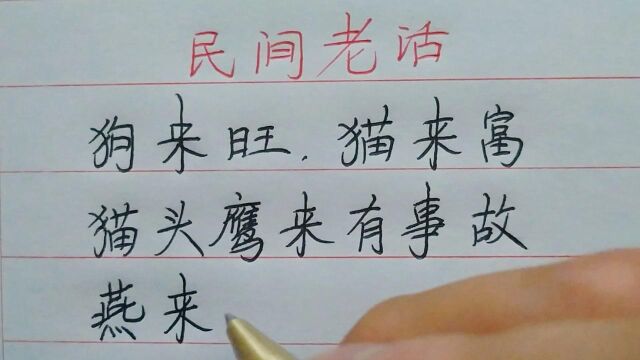 民间老话
狗来旺,猫来富
猫头鹰来有事故
燕来